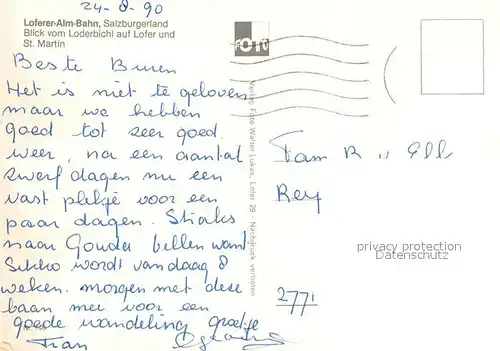 24-8-90
Loferer-Alm-Bahn, Salzburgerland
Blick vom Loderbichl auf Lofer und
St. Martin
Beste Buren
Het is niet te geloven
maar we hebben
goed tot zeer goed
weer, na een aantal
zwerf dagen nu een
vast plekje voor een
paar dagen. Straks
naar Gouda bellen want
wordt vandaag 8
weken. morgen met deze
baan mee voor een
goede wandeling groetjes
Fran
FOTO
Verlag Foto Walter Lukas, Lofer 29 · Nachdruck verboten
Fam R
Rey
2771
privacy protection
Datenschutz